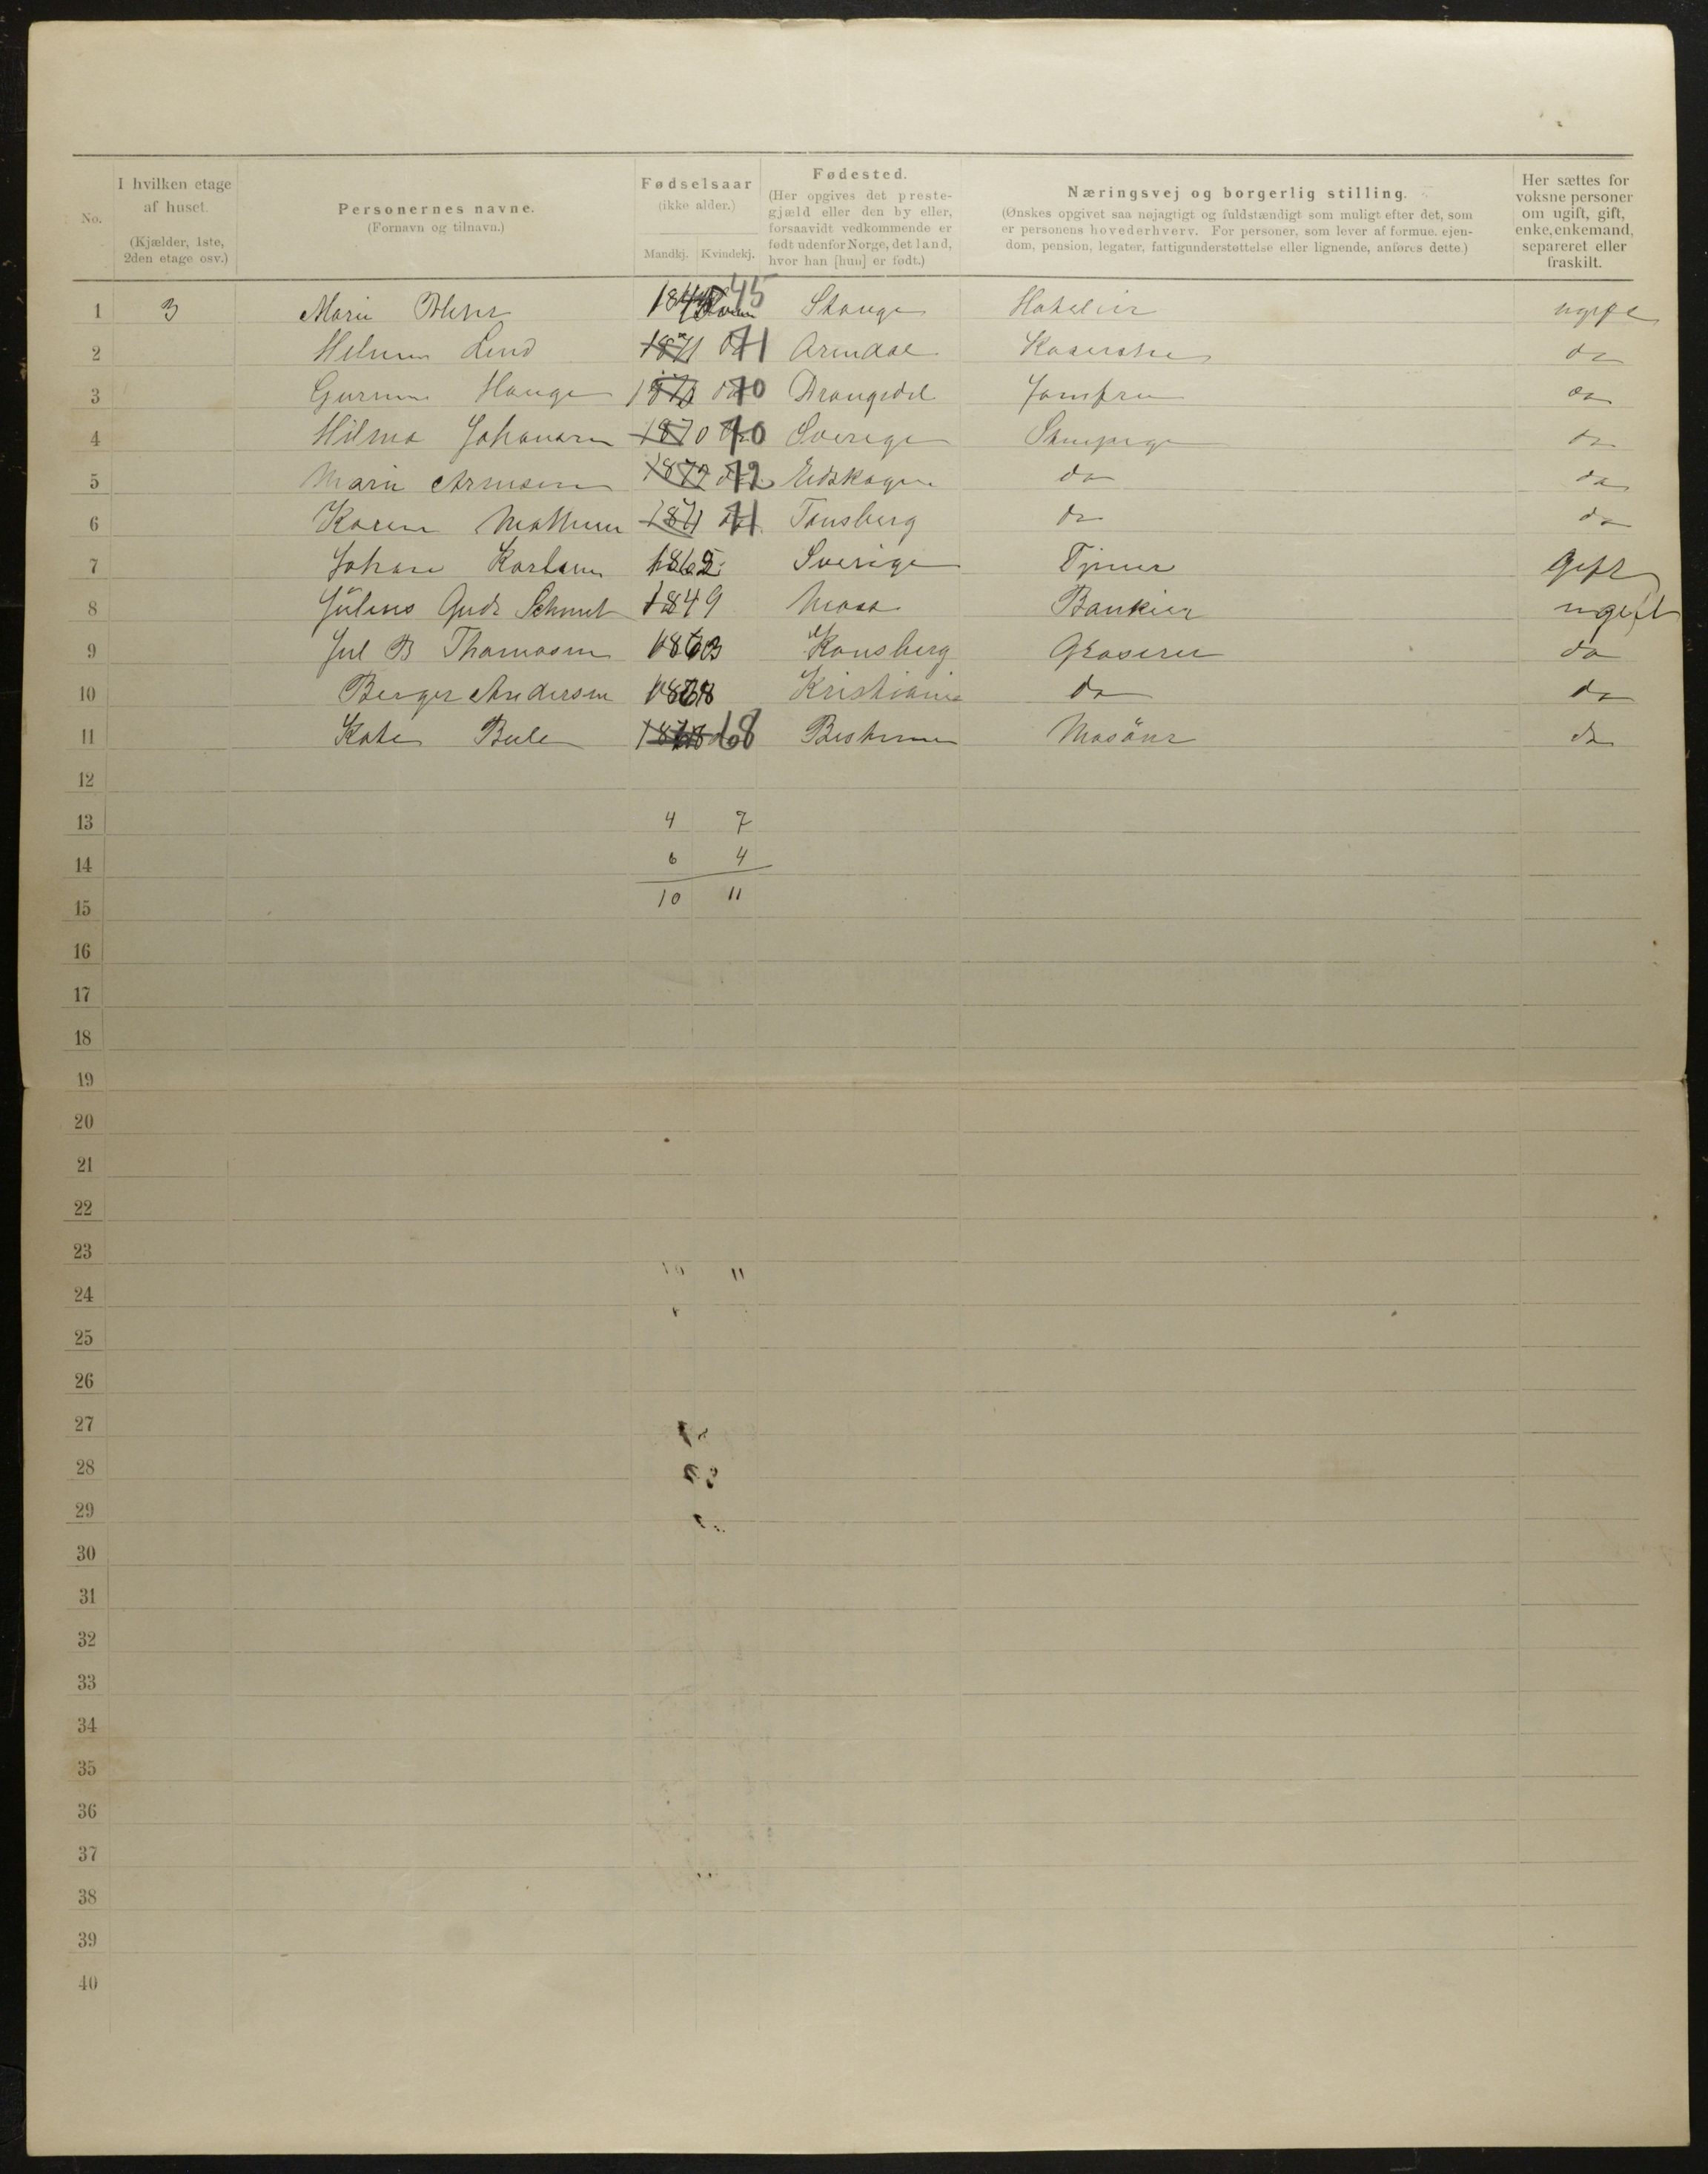 No.
I hvilken etage af huset. (Kjælder, 1ste, 2den etage osv.)
Personernes navne. (Fornavn og tilnavn.)
Fødselsaar (ikke alder.) Mandkj. Kvindekj.
Fødested. (Her opgives det prestegjæld eller den by eller, forsaavidt vedkommende er født udenfor Norge, det land, hvor han [hun] er født.)
Næringsvej og borgerlig stilling. (Ønskes opgivet saa nøjagtigt og fuldstændigt som muligt efter det, som er personens hovederhverv. For personer, som lever af formue, ejendom, pension, legater, fattigunderstøttelse eller lignende, anføres dette.)
Her sættes for voksne personer om ugift, gift, enke, enkemand, separeret eller fraskilt.
1 3 Marie 45 Stange ugift
2 Lind 1871 71 Arendal do
3 Hauge 70 Drangedal Jomfru do
4 Hilma Johansen 1870 70 Sverige do
5 Marie 1872 72 Eidskogen do do
6 Karen 1871 71 Tønsberg do do
7 Johan Karlsen 1865 Sverige Tjener Gift
8 Julius Andr 1849 Moss Bankier ugift
9 Jul B Thomasen 1863 Kongsberg Graserer do
10 Berger Andersen 1868 Kristiania do do
11 68 do
12
13 4 7
14 6 4
15 10 11
16
17
18
19
20
21
22
23
24
25
26
27
28
29
30
31
32
33
34
35
36
37
38
39
40